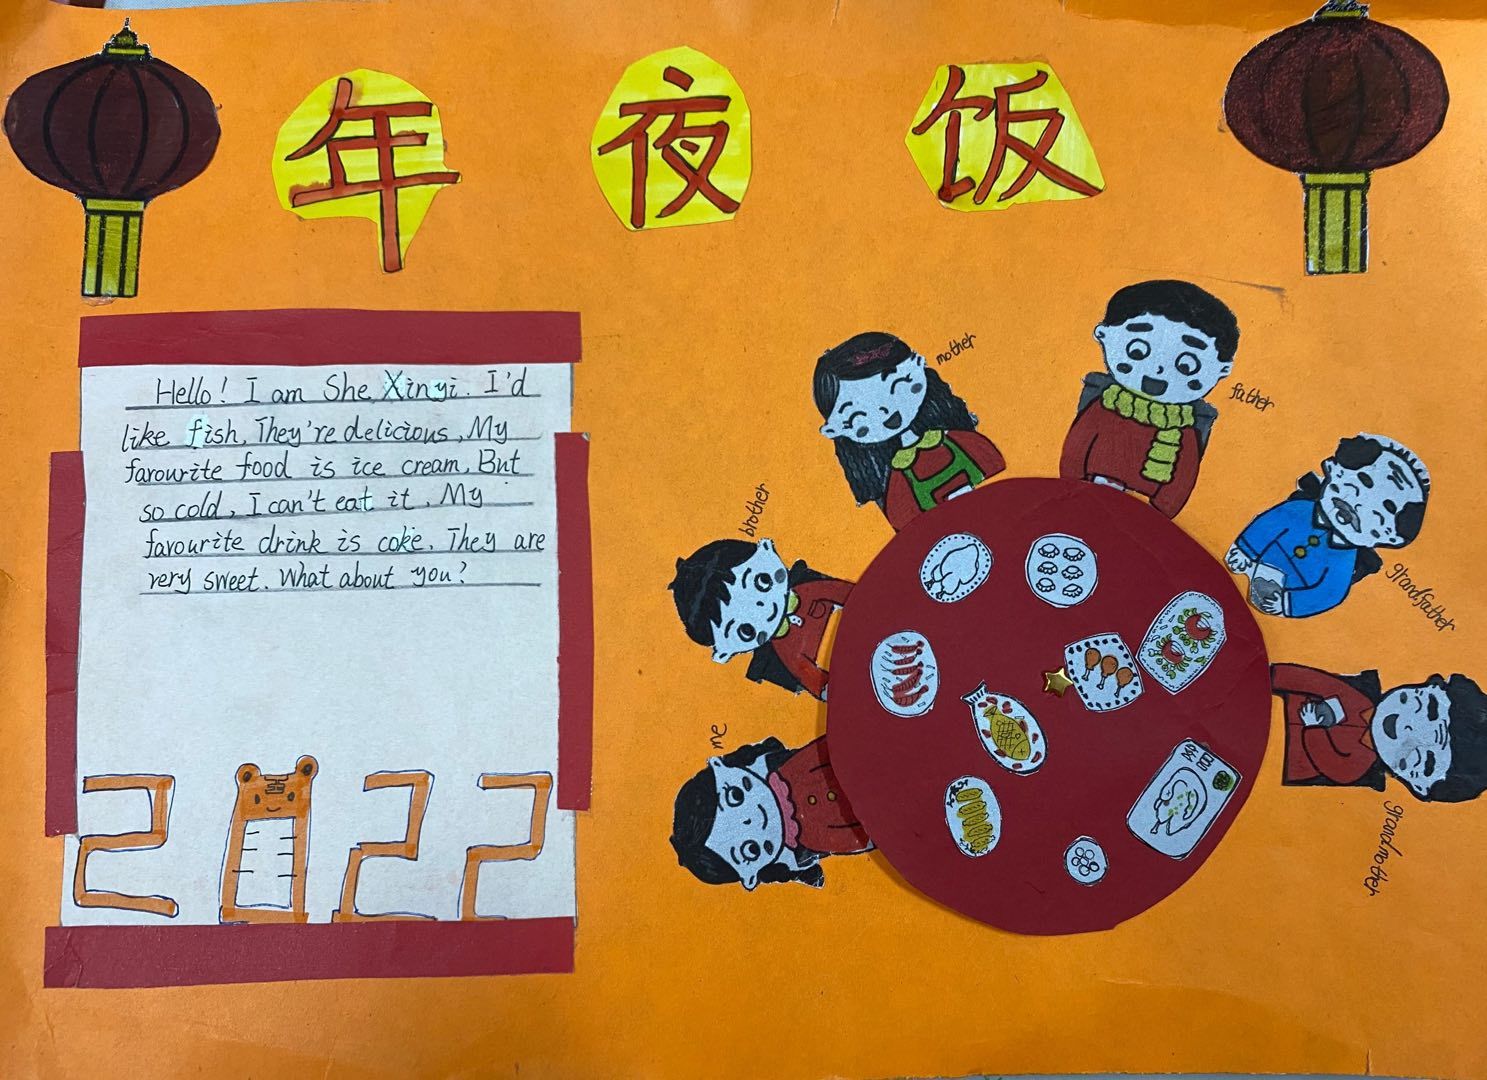 年夜饭
Hello! I am She Xinyi. I'd
like fish, They're delicious, My
favourite food is ice cream, But
so cold, I can't eat it, My
favourite drink is coke, They are
very sweet. What about you?
2022
mother
father
brother
grandfather
me
grandmother